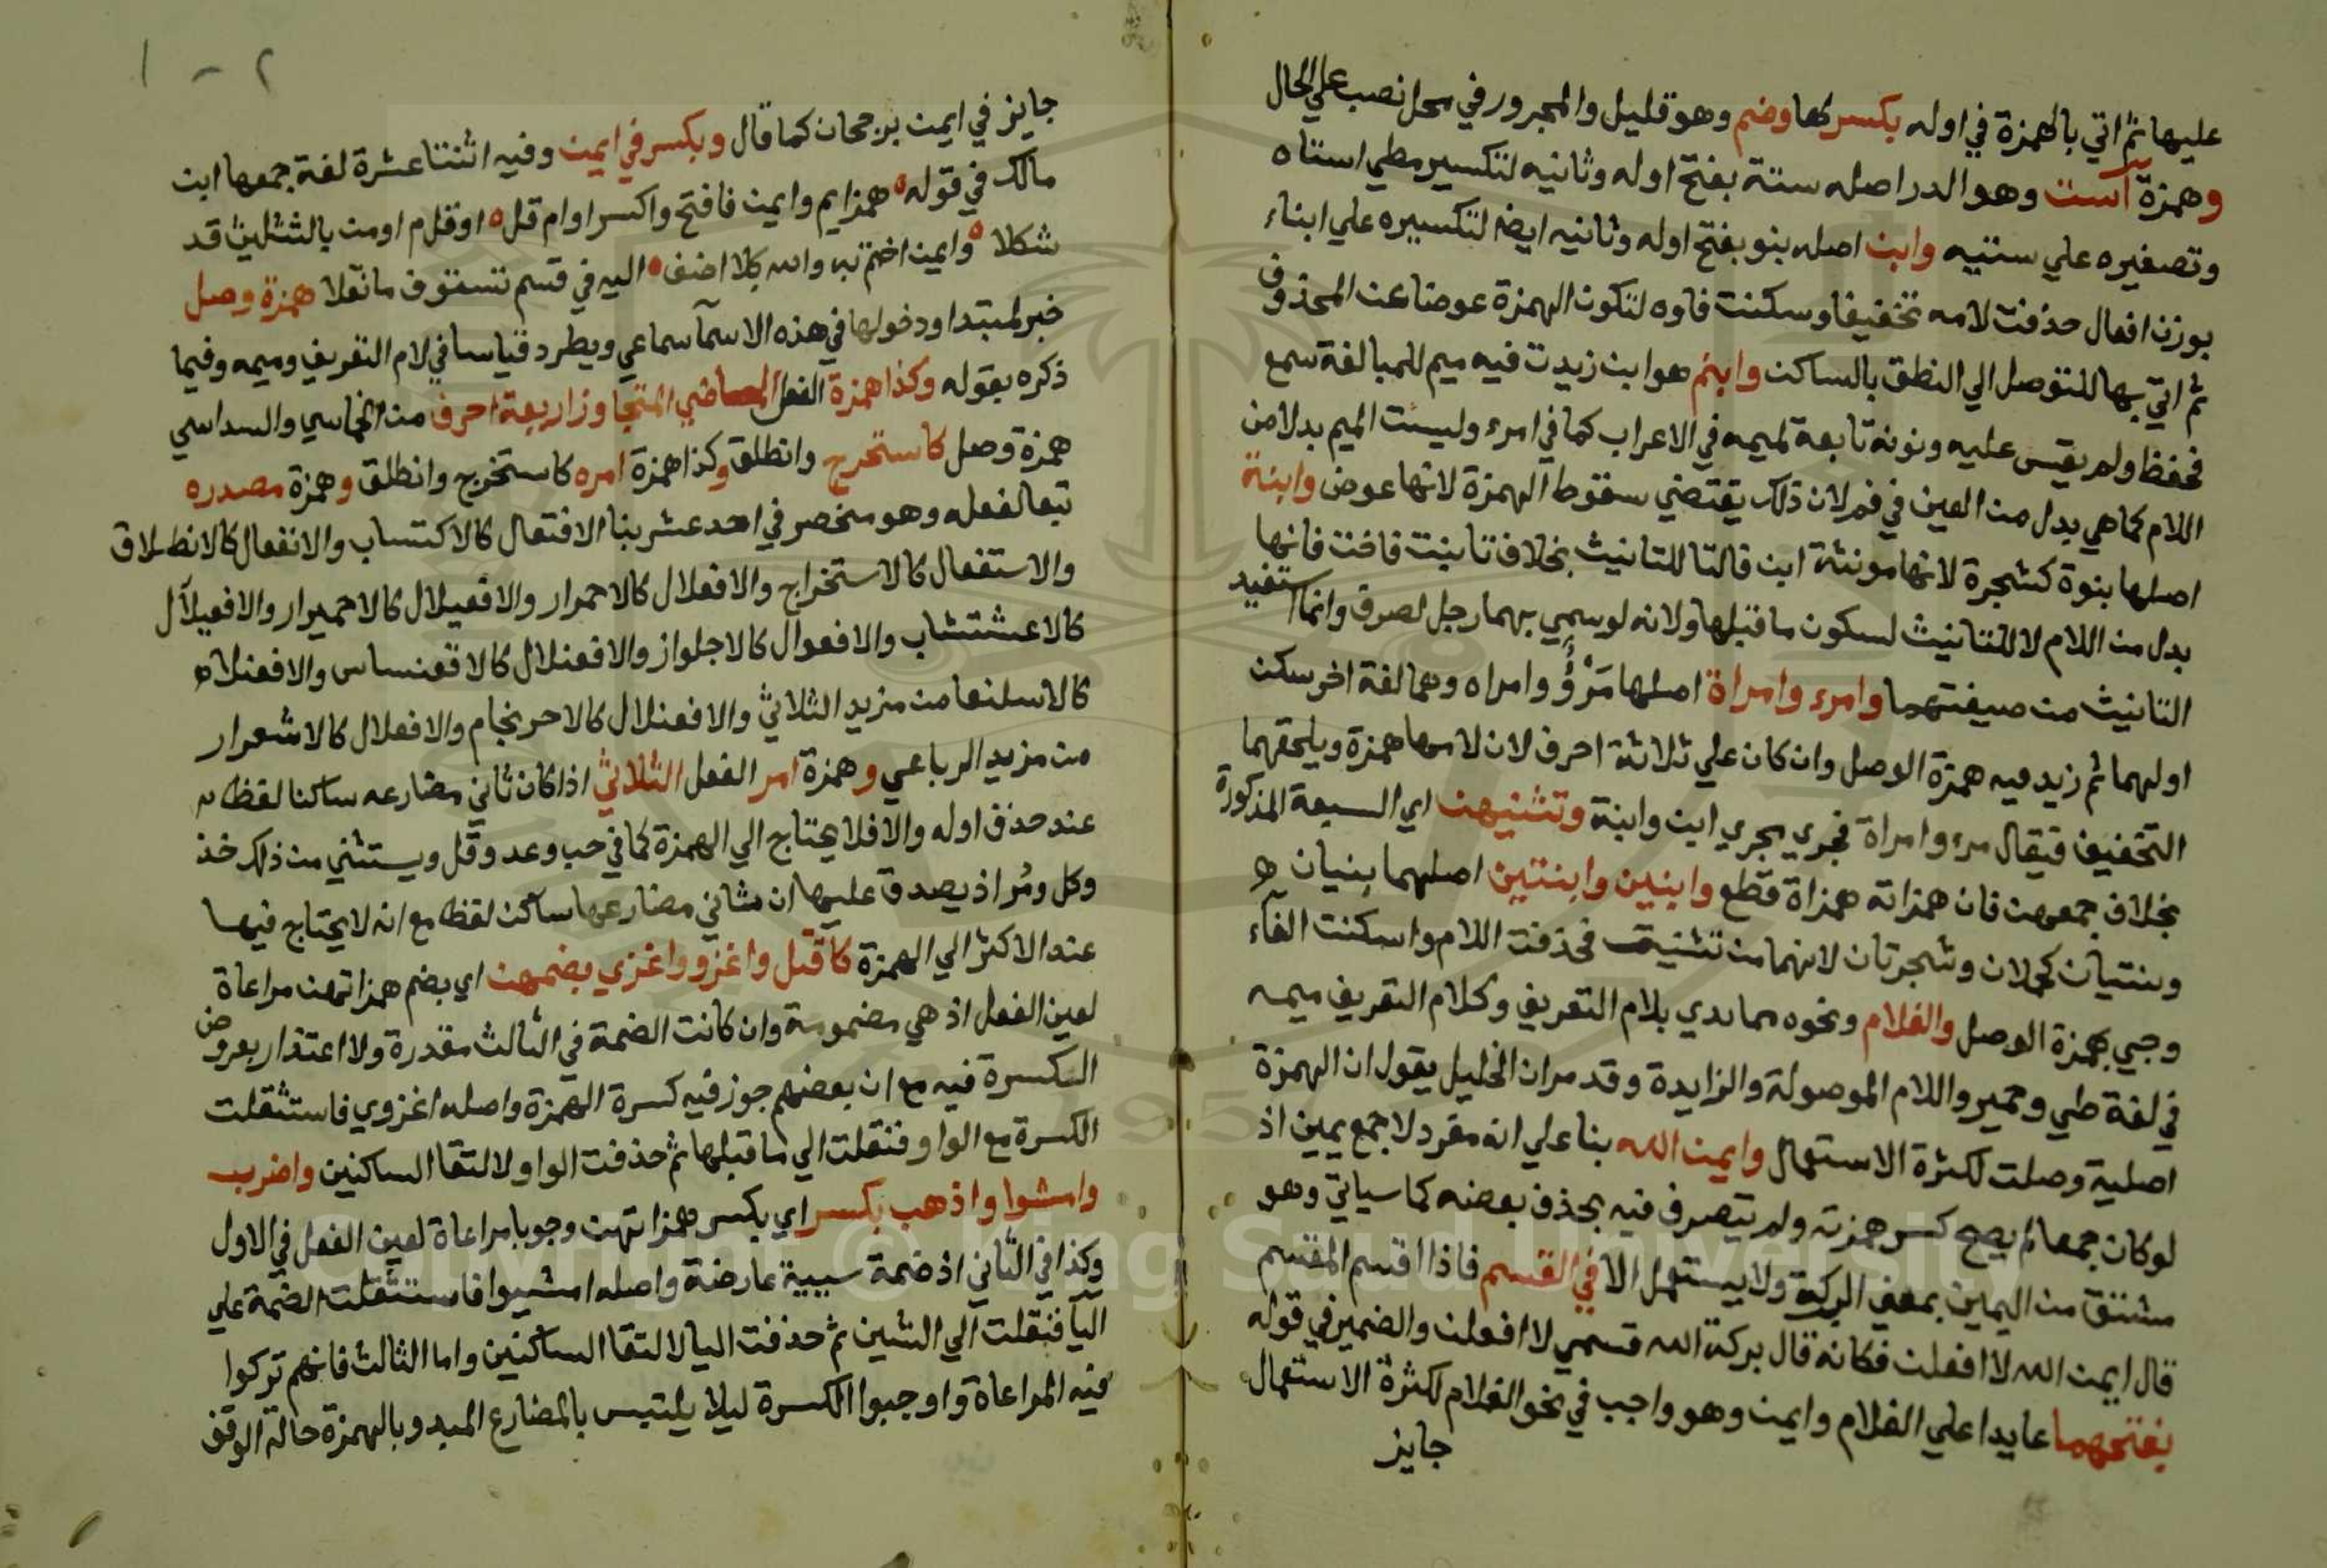 عليها ثم اتي بالهمزة في اوله بكسر لها وضم وهو قليل والمجرور في محل نصب علي الحال
وهمزة است وهو الدبر اصله سته بفتح اوله وثانيه لتكسيره علي استاه
وتصغيره علي ستيه وابن اصله بنو بفتح اوله وثانيه ايضا لتكسيره علي ابناء
بوزن افعال حذفت لامه تخفيفا وسكنت فاوه لتكون الهمزة عوضا عن المحذوف
ثم اتي بها للتوصل الي النطق بالساكن وابنم هو ابن زيدت فيه ميم للمبالغة سمع
فحفظ ولم يقس عليه ونونه تابعة لميمه في الاعراب كما في امرء وليست الميم بدلا من
اللام كما هي بدل من العين في فم لان ذلك يقتضي سقوط الهمزة لانها عوض وابنة
اصلها بنوة كشجرة لانها مونثة ابن فالتا للتانيث بخلاف تا بنت فاخت فانها
بدل من اللام لا للتانيث لسكون ما قبلها ولانه لو سمي بهما رجل لصرف وانما استفيد
التانيث من صيغتهما وامرء وامراة اصلها مرؤ وامراه وهما لغة اخر سكن
اولهما ثم زيد فيه همزة الوصل وان كان علي ثلاثة احرف لان لامها همزة ويلحقهما
التخفيف فيقال مرء وامراة فجري مجري ابن وابنة وتثنيهن اي السبعة المذكورة
بخلاف جمعهن فان همزاته همزاة قطع وابنين وابنتين اصلهما بنيان
وبنتيان كجملان وشجرتان لانهما من تثنيت فحذفت اللام واسكنت الفآء
وجيي بهمزة الوصل والغلام ونحوه مما بدي بلام التعريف وكلام التعريف ميمه
في لغة طي وحمير واللام الموصولة والزايدة وقد مر ان الخليل يقول ان الهمزة
اصلية وصلت لكثرة الاستعمال وايمن الله بنا علي انه مفرد لا جمع يمين اذ
لو كان جمعا لم يصح كسر همزته ولم يتصرف فيه بحذف بعضه كما سياتي وهو
مشتق من اليمين بمعني البركة ولا يستعمل الا في القسم فاذا اقسم المقسم
قال ايمن الله لا افعلن فكانه قال بركة الله قسمي لا افعلن والضمير في قوله
بفتحهما عايدا علي الغلام وايمن وهو واجب في نحو الغلام لكثرة الاستعمال
جايز
٢ - ١
جايز في ايمن برجحان كما قال وبكسر في ايمن وفيه اثنتا عشرة لغة جمعها ابن
مالك في قوله همز ايم وايمن فافتح واكسر او ام قل او قل م او من بالتثليث قد
شكلا وايمن اختم به والله كلا اضف اليه في قسم تستوف ما نقلا همزة وصل
خبر لمبتدا ودخولها في هذه الاسمآ سماعي ويطرد قياسا في لام التعريف وميمه وفيما
ذكره بقوله وكذا همزة الفعل الماضي المتجاوز اربعة احرف من الخماسي والسداسي
همزة وصل كاستخرج وانطلق وكذا همزة امره كاستخرج وانطلق وهمزة مصدره
تبعا لفعله وهو منحصر في احد عشر بنا الافتعال كالاكتساب والانفعال كالانطلاق
والاستفعال كالاستخراج والافعلال كالاحمرار والافعيلال كالاحميرار والافعيلآل
كالاعشتشاب والافعوال كالاجلواز والافعنلال كالاقعنساس والافعنلاه
كالاسلنعا من مزيد الثلاثي والافعنلال كالاحرنجام والافعلال كالاشعرار
من مزيد الرباعي وهمزة امر الفعل الثلاثي اذا كان ثاني مضارعه ساكنا لفظا
عند حذف اوله والا فلا يحتاج الي الهمزة كما في حب وعد وقل ويستثني من ذلك خذ
وكل ومر اذ يصدق عليها ان ثاني مضارعها ساكن لفظا مع انه لا يحتاج فيها
عند الاكثر الي الهمزة كاقتل واغزو واغزي بضمهن اي بضم همزاتهن مراعاة
لعين الفعل اذ هي مضمومة وان كانت الضمة في الثالث مقدرة ولا اعتذار بعروض
الكسرة فيه مع ان بعضهم جوز فيه كسرة الهمزة واصله اغزوي فاستثقلت
الكسرة مع الواو فنقلت الي ما قبلها ثم حذفت الواو لالتقا الساكنين واضرب
وامشوا واذهب بكسر اي بكسر همزاتهن وجوبا مراعاة لعين الفعل في الاول
وكذا في الثاني اذ ضمة سيبية عارضة واصله امشيوا فاستثقلت الضمة علي
اليآ فنقلت الي الشين ثم حذفت اليا لالتقا الساكنين واما الثالث فانهم تركوا
فيه المراعاة واوجبوا الكسرة ليلا يلتبس بالمضارع المبدو بالهمزة حالة الوقف
Copyright © King Saud University
1957